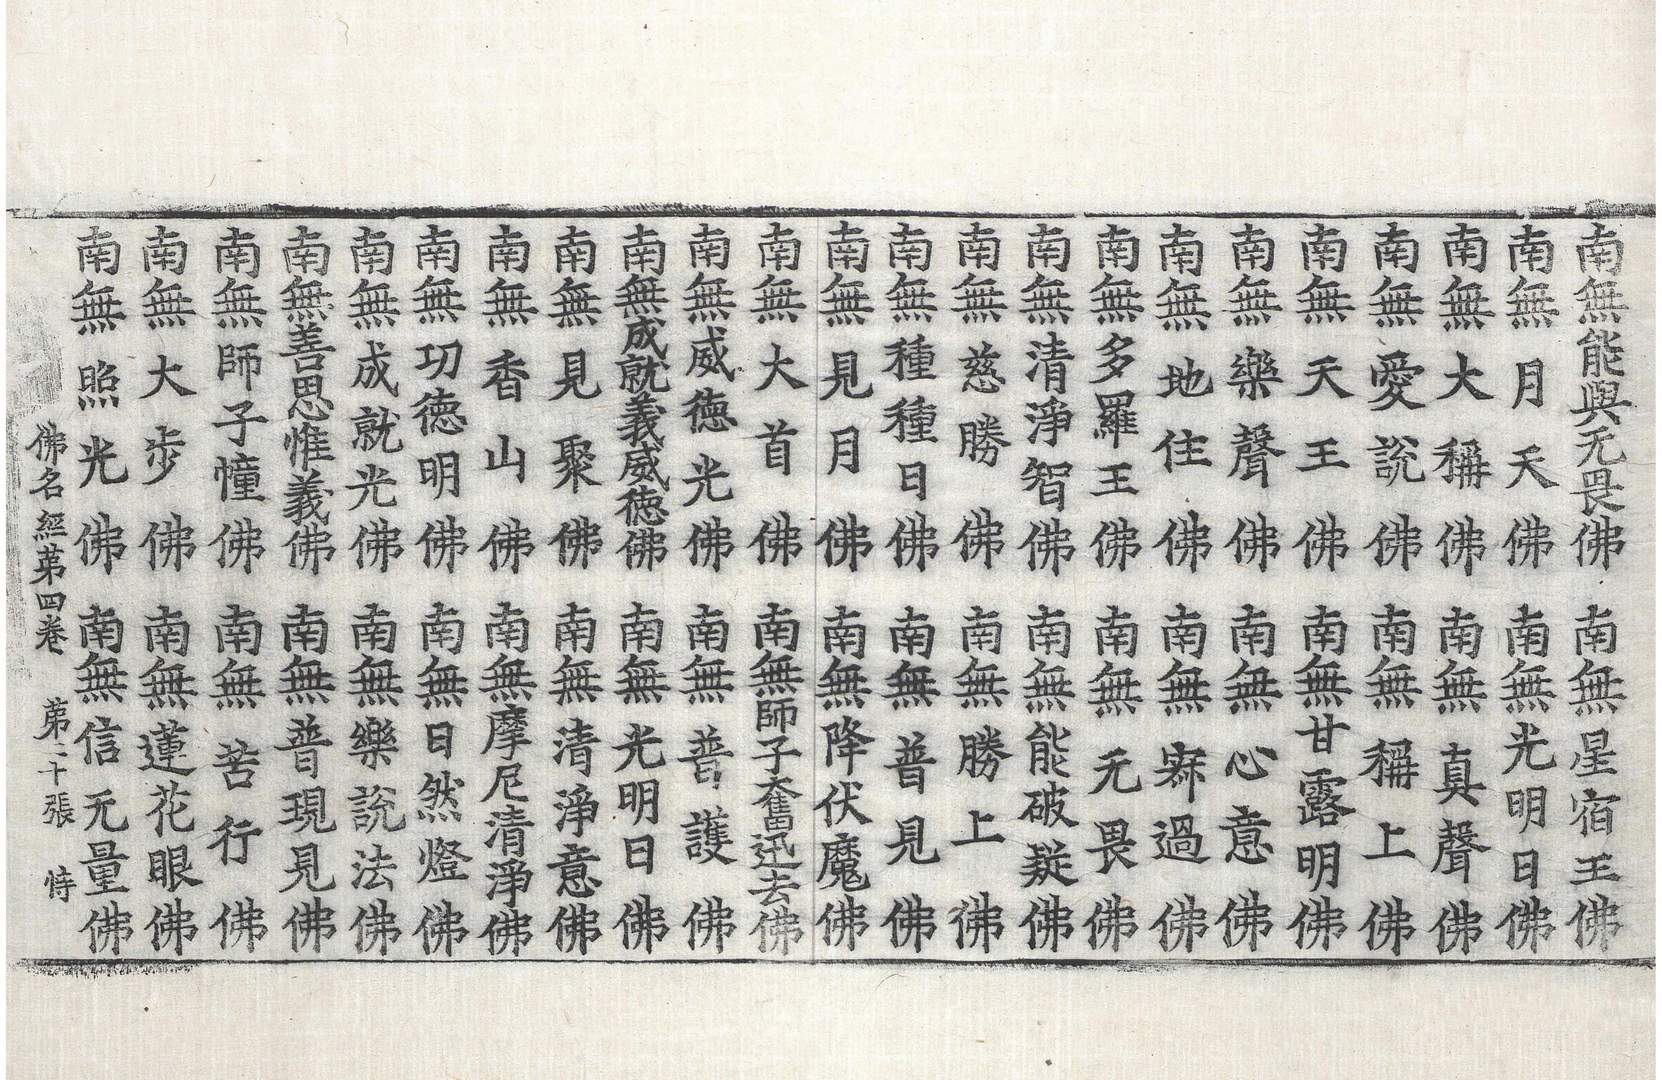 南無能與无畏佛 南無星宿王佛
南無月天佛 南無光明日佛
南無大稱佛 南無真聲佛
南無愛說佛 南無稱上佛
南無天王佛 南無甘露明佛
南無樂聲佛 南無心意佛
南無地住佛 南無寂過佛
南無多羅王佛 南無无畏佛
南無清淨智佛 南無能破疑佛
南無慈勝佛 南無勝上佛
南無種種日佛 南無普見佛
南無見月佛 南無降伏魔佛
南無大首佛 南無師子奮迅去佛
南無威德光佛 南無普護佛
南無成就義威德佛 南無光明日佛
南無見聚佛 南無清淨意佛
南無香山佛 南無摩尼清淨佛
南無功德明佛 南無日然燈佛
南無成就光佛 南無樂說法佛
南無善思惟義佛 南無普現見佛
南無師子幢佛 南無苦行佛
南無大步佛 南無蓮花眼佛
南無照光佛 南無信无量佛
佛名經苐四卷 苐二十張 恃